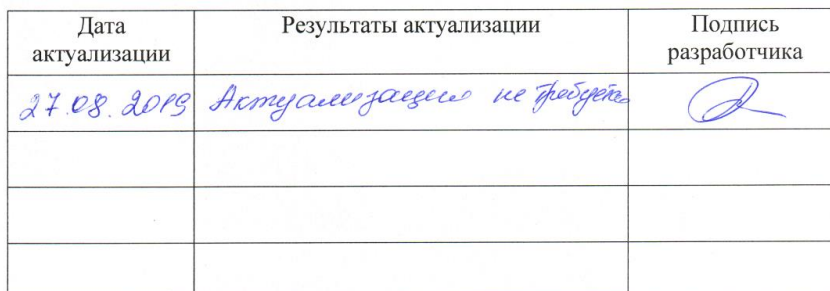 Дата актуализации Результаты актуализации Подпись разработчика
27.08.2019 Актуализация не требуется